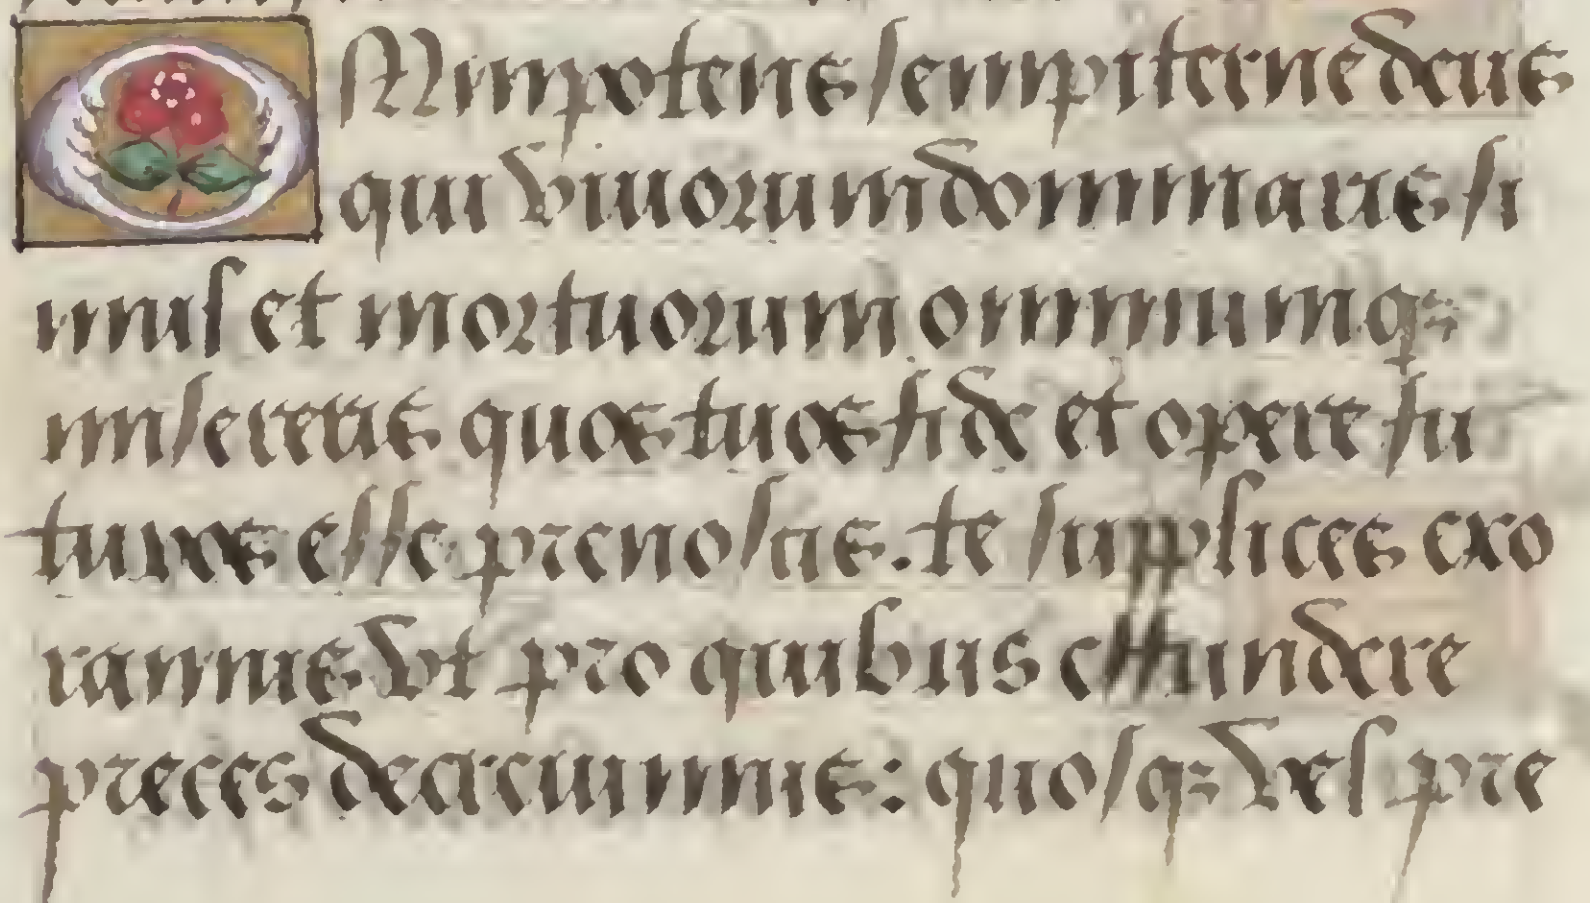 OMnipotens sempiterne deus
qui viuorum dominaris si
mul et mortuorum omniumqꝫ
misereris quos tuos fide et opere fu
turos esse prenoscis. te supplices exo
ramus vt pro quibus effundere
preces decreuimus: quosqꝫ vel pre